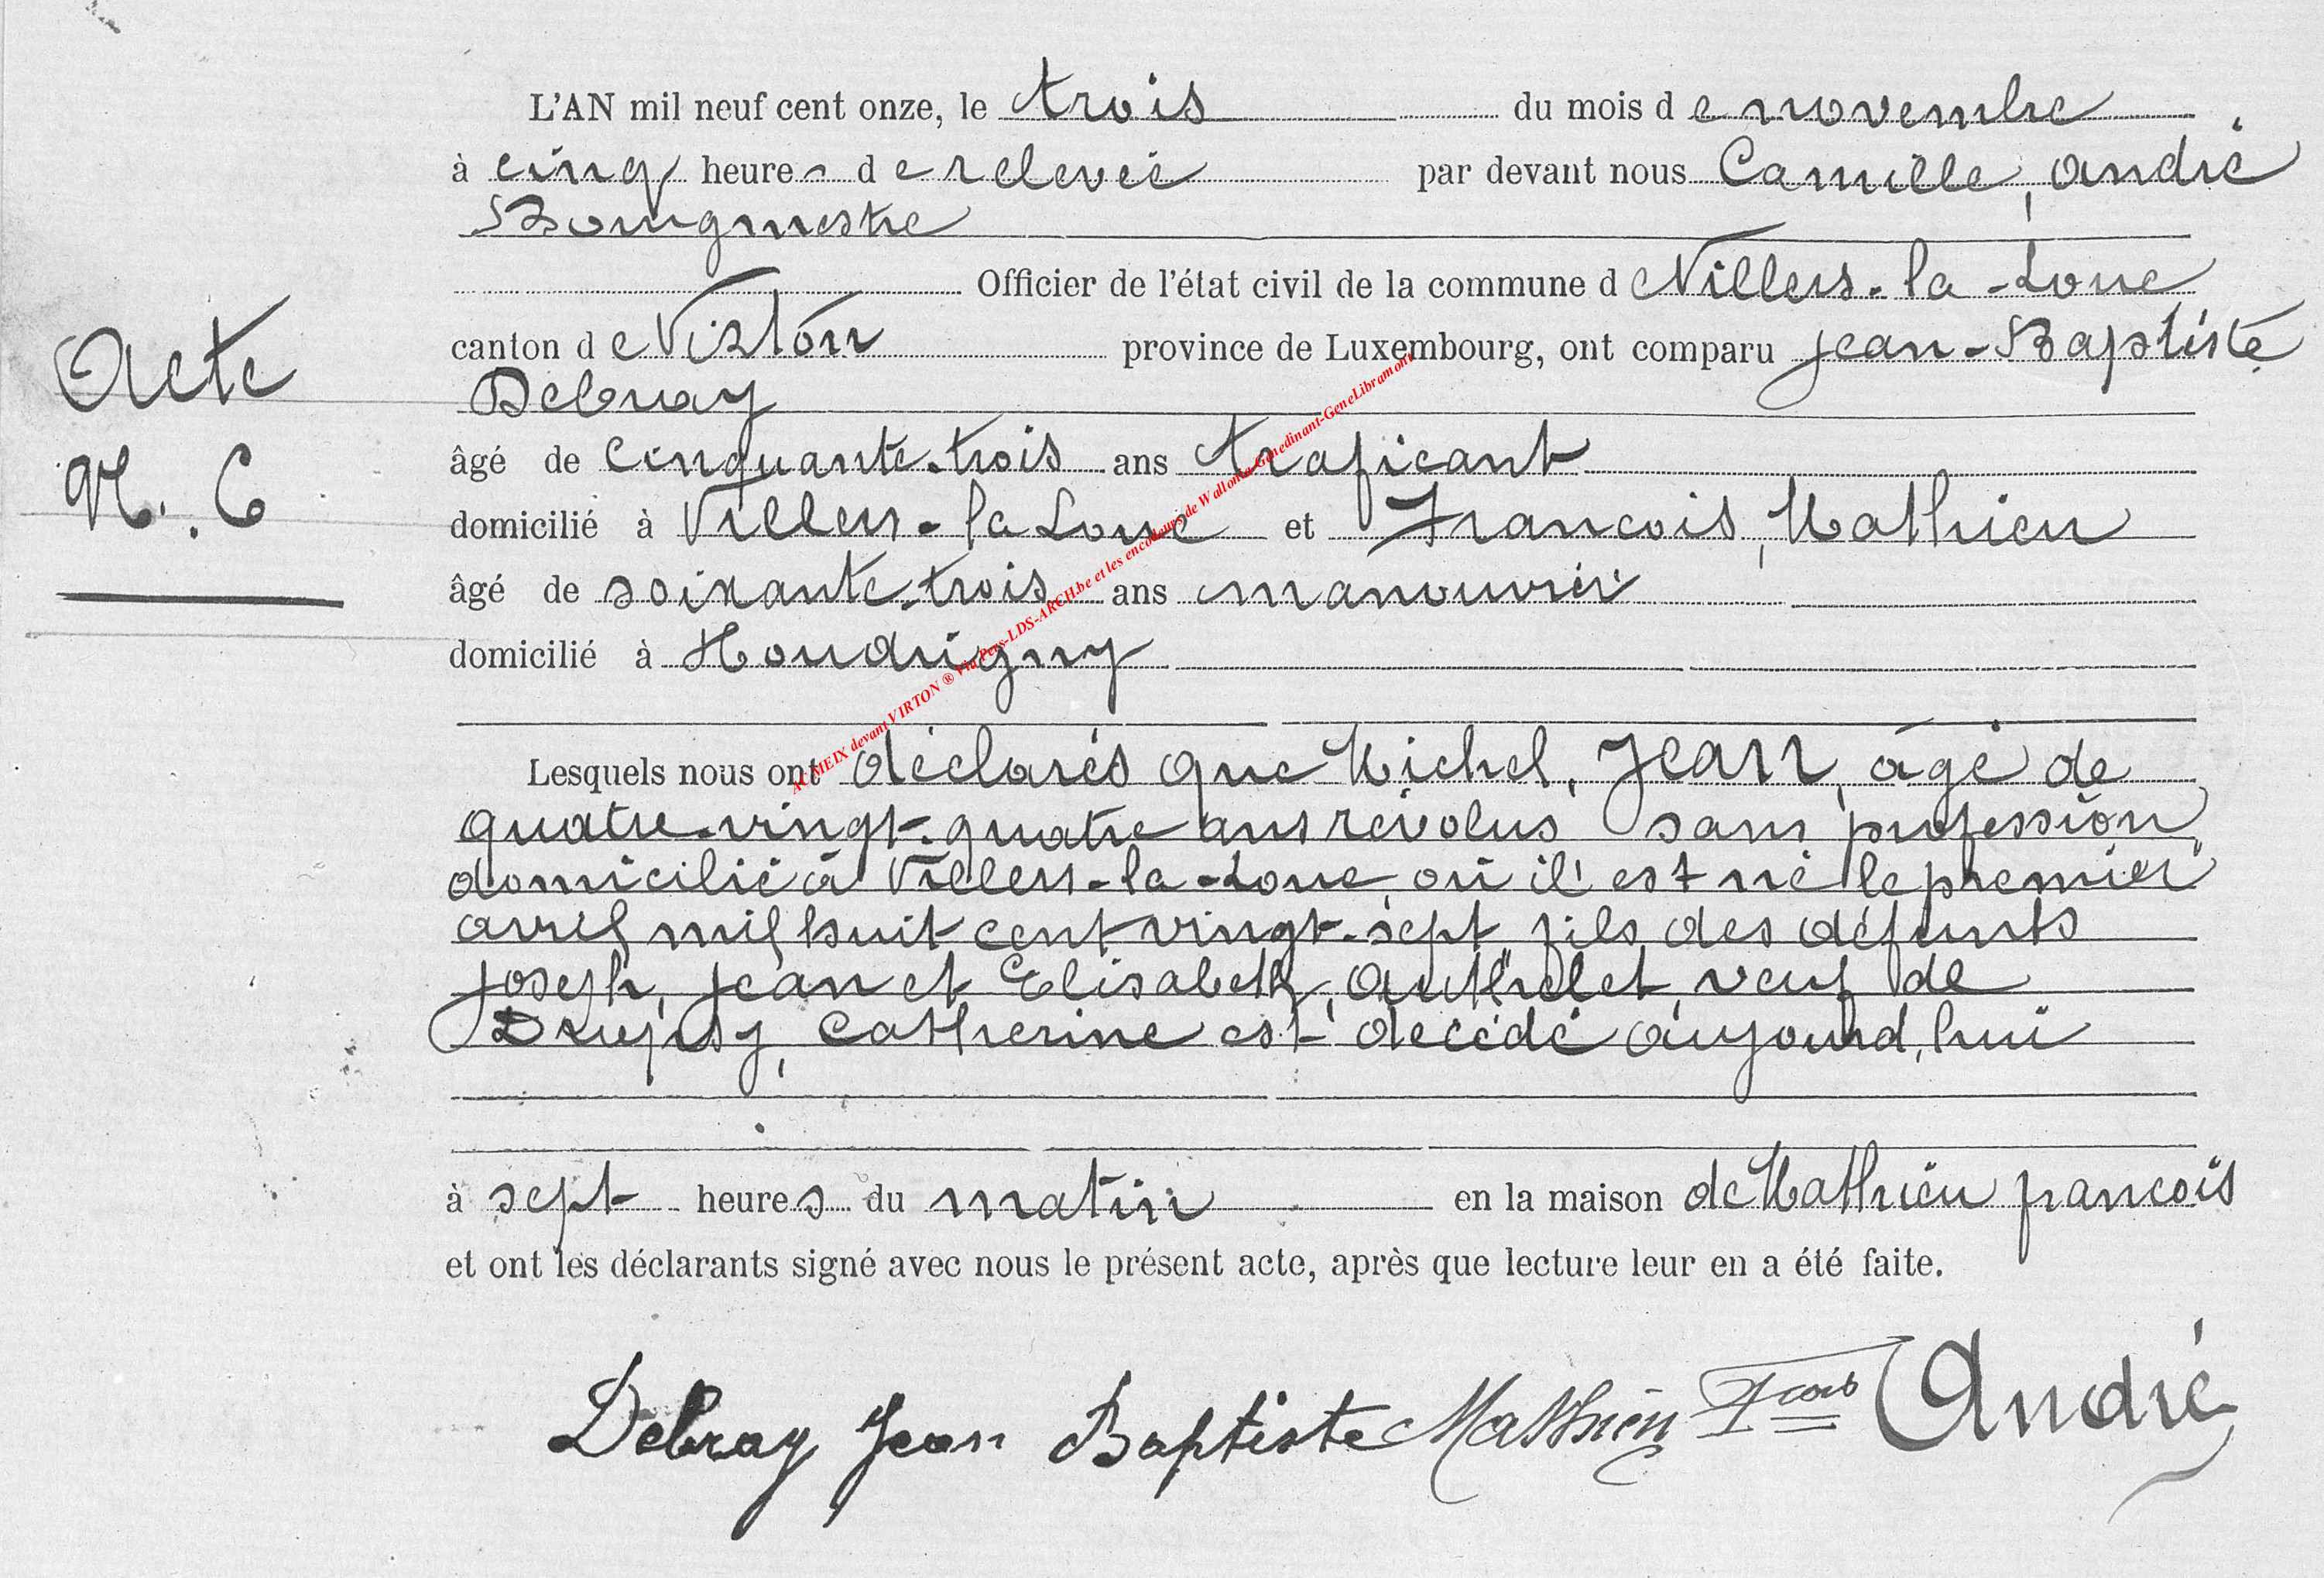 L'AN mil neuf cent onze, le trois du mois de novembre
à cinq heures de relevée par devant nous Camille, André
Bourgmestre
Officier de l'état civil de la commune de Villers-la-Loue
canton de Virton province de Luxembourg, ont comparu Jean-Baptiste
Acte
Debray
N. 6
âgé de cinquante-trois ans traficant
domicilié à Villers-la Loue et Francois, Mathieu
âgé de soixante-trois ans manouvrier
domicilié à Houdrigny
ACMEIX devant VIRTON ® Via Pers-LDS-ARCH.be et les encodeurs de Wallonia-Genedinant-GeneLibramont
Lesquels nous ont déclarés que Michel, JEAN, âgé de
quatre-vingt-quatre ans révolus sans profession
domicilié à Villers-la-Loue, où il est né le premier
avril mil huit cent vingt-sept, fils des défunts
Joseph, Jean et Elisabeth, Authelet, veuf de
Catherine est décédé aujourd'hui
à sept heures du matin en la maison de Mathieu francois
et ont les déclarants signé avec nous le présent acte, après que lecture leur en a été faite.
Debray Jean Baptiste Mathieu Fcois André